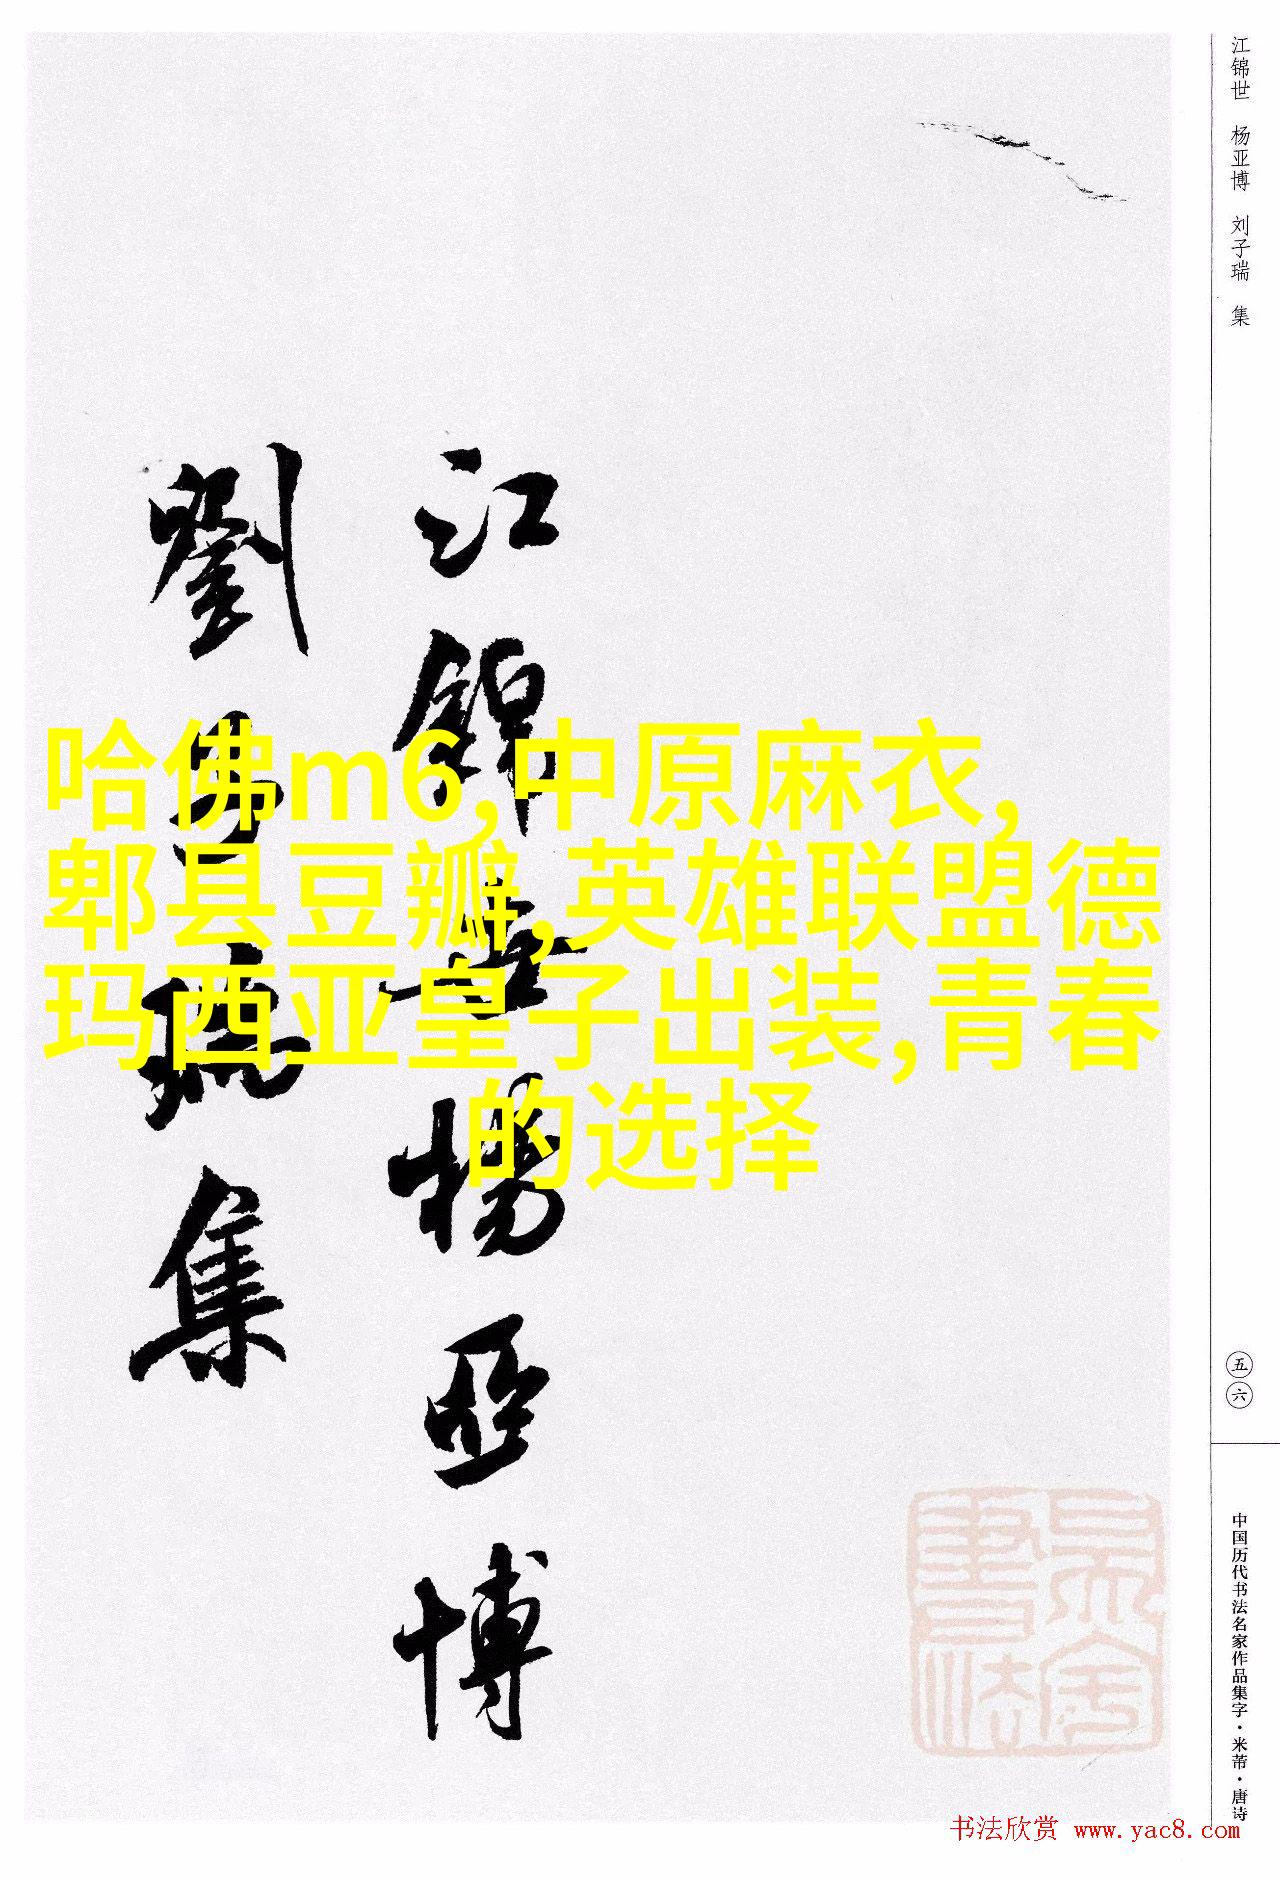 江锦世 杨亚博 刘子瑞 集
江錦世楊亞博
劉子瑞集
哈佛m6,中原麻衣,
郫县豆瓣,英雄联盟德
玛西亚皇子出装,青春
的选择
五六
中国历代书法名家作品集字·米芾·唐诗
书法欣赏 www.yac8.com